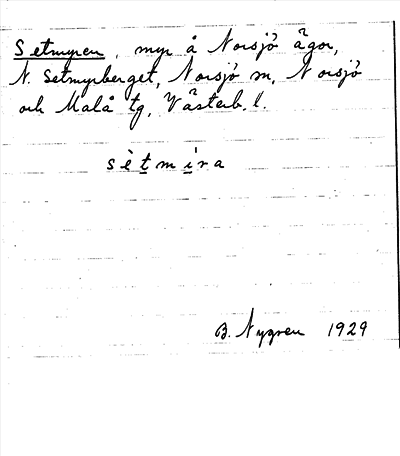 Setmyren, myr å Norsjö ägor,
N. Setmyrberget, Norsjö sn, Norsjö
och Malå tg, Västerb. l.
sètmi̱ra
B. Nygren 1929